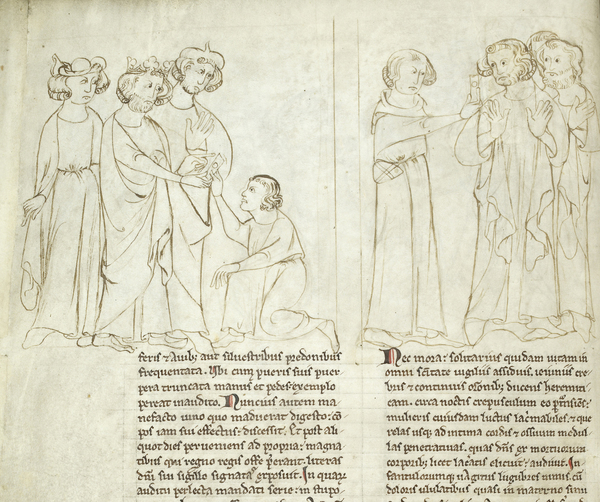 feris ⁊ auib; aut siluestribus predonibus
frequentata. Vbi cum pueris suis puer
pera truncata manus et pedes exemplo
pereat inaudito. Nuncius autem ma
ne facto uino quo maduerat digesto: cō
pos iam sui effectus: discessit. Et post ali
quot dies perueniens ad propria: magna
tibus qui regno regis offe prerant. literas
dñi sui sigillo signatas exposuit. In quar
auditu perlecta mandati serie: in stupo
Nec mora: solitarius quidam uitam in
omni sc̄titate uigiliis assiduis, ieiuniis cre
bris ⁊ continuis or̄onib; ducens heremiti
cam. circa noctis crepusculum eo ꝑtᷓnsies:
mulieris cuiusdam luctus lac̄mabiles: ⁊ que
relas usq; ad intima cordis ⁊ ossium medul
las penetratiuas. quas dn̄s ex mortuorum
corporib; licet lac̄atis elicuit: audiuit. In
fantulorumq; uagitus lugubres nimis cum
doloris ululatibus quasi in materno sinu